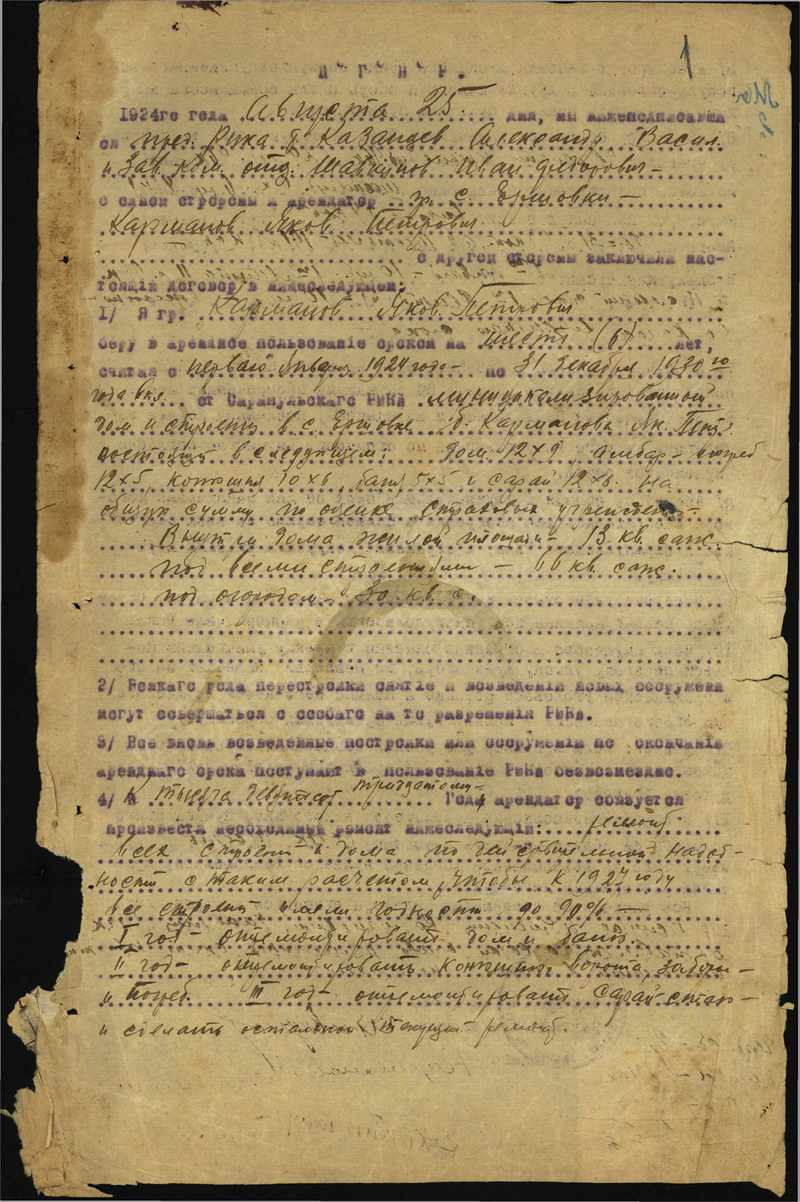 1
Д О Г О В О Р.
1924го года Августа 25 дня, мы нижеподписавши
ся пред. Рика т. Казанцев Александр Васил.
и Зав. Ком. отд. Иван Федорович
с одной стороны и арендатор гр. с. Ершовки
Карманов Яков Петрович
с другой стороны заключили нас-
тоящій договор в нижеследующем:
1/ Я гр. Карманов Яков Петрович
беру в арендное пользованіе сроком на шесть (6) лет,
считая с первого Января 1924 года по 31 Декабря 1930 го
года вкл. от Сарапульскаго РИКа муниципализированной
дом и строения в с. Ершовке б. Карманова Як. Петр.
состоящ в следующем: дом 12х9, амбар - погреб
12х5, конюшня 10х6, баня 5х5 и сарай 12х6. На
общую сумму по оценке страховых
дома жилой площади - 13 кв. саж.
под всеми строениями - 66 кв. саж.
под огородом - 80 кв. с.
2/ Всякаго рода перестройки снятіе и возведеніи новых сооружени
могут совершаться с особаго на то разрешенія РИКа.
3/ Все вновь возведенные постройки или сооруженія по окончаніи
аренднаго срока поступают в пользованіе РИКа безвозмездно.
4/ К тысяча девятьсот тридцатому года арендатор обязуется
произвести необходимый ремонт нижеследующій: ремонт
всех строений и дома по действительной надоб-
ности с таким расчетом, чтобы к 1927 году
все строения имели годность до 90% —
I год - отремонтировать дом и баню.
II год - отремонтировать конюшню, ворота, заборы
и погреб. III год - отремонтировать сарай
и сделать остальной текущий ремонт.